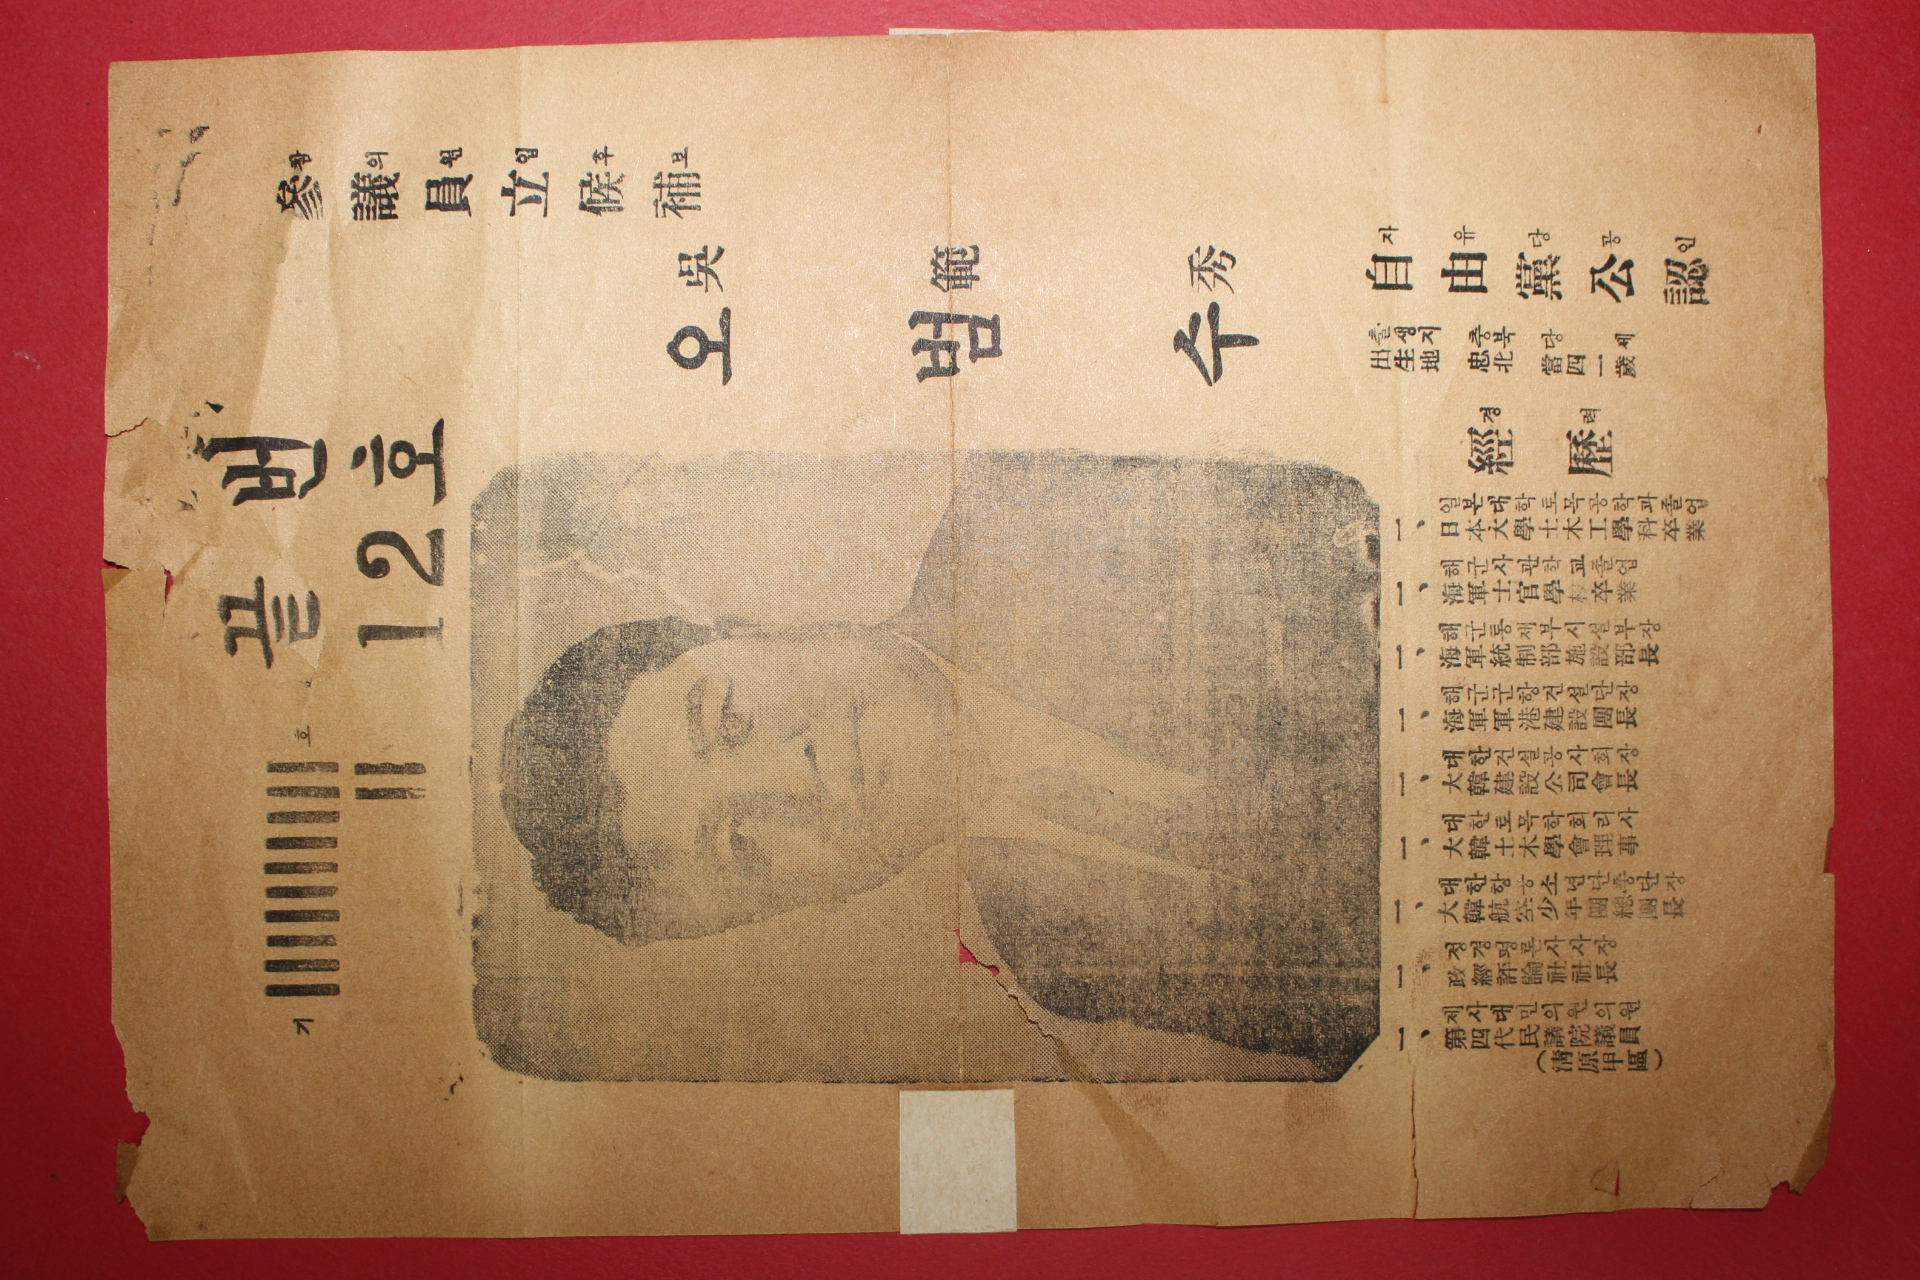 참의원입후보
參議員立候補
吳範秀
오범수
끝번
12호
기 호
자유당공인
自由黨公認
출생지 충북 당 세
出生地 忠北 當四一歲
경력
經歷
일본대학토목공학과졸업
一、日本大學土木工學科卒業
해군사관학교졸업
一、海軍士官學校卒業
해군통제부시설부장
一、海軍統制部施設部長
해군군항건설단장
一、海軍軍港建設團長
대한건설공사회장
一、大韓建設公司會長
대한토목학회리사
一、大韓土木學會理事
대한항공소년단총단장
一、大韓航空少年團總團長
정경평론사사장
一、政經評論社社長
제사대민의원의원
一、第四代民議院議員
(淸原甲區)